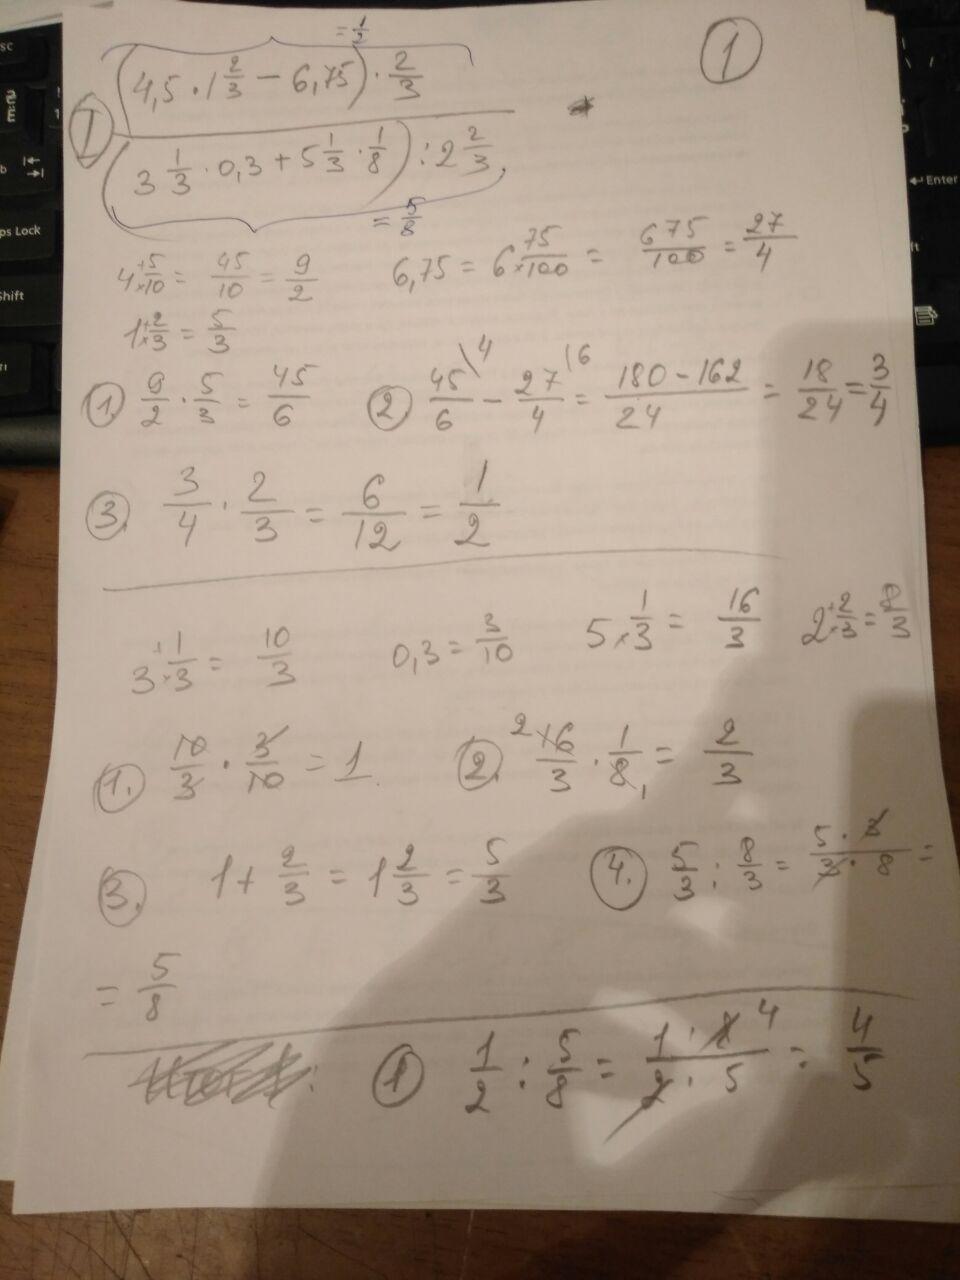 = 1/2
①
Ⅰ (4,5 · 1 2/3 − 6,75) · 2/3
(3 1/3 · 0,3 + 5 1/3 · 1/8) : 2 2/3
= 5/8
4 +5/×10 = 45/10 = 9/2 6,75 = 6 75/×100 = 675/100 = 27/4
1 +2/×3 = 5/3
① 9/2 · 5/3 = 45/6 ② 45/6 \4 − 27/4 |6 = 180 − 162/24 = 18/24 = 3/4
③. 3/4 · 2/3 = 6/12 = 1/2
3 +1/×3 = 10/3 0,3 = 3/10 5 × 1/3 = 16/3 2 +2/×3 = 8/3
①. 10/3 · 3/10 = 1 ②. 2 16/3 · 1/8 1 = 2/3
③. 1 + 2/3 = 1 2/3 = 5/3 ④. 5/3 : 8/3 = 5 · 3/3 · 8 =
= 5/8
: ① 1/2 : 5/8 = 1 · 8 4/2 · 5 = 4/5
sc
ps Lock
Shift
Enter